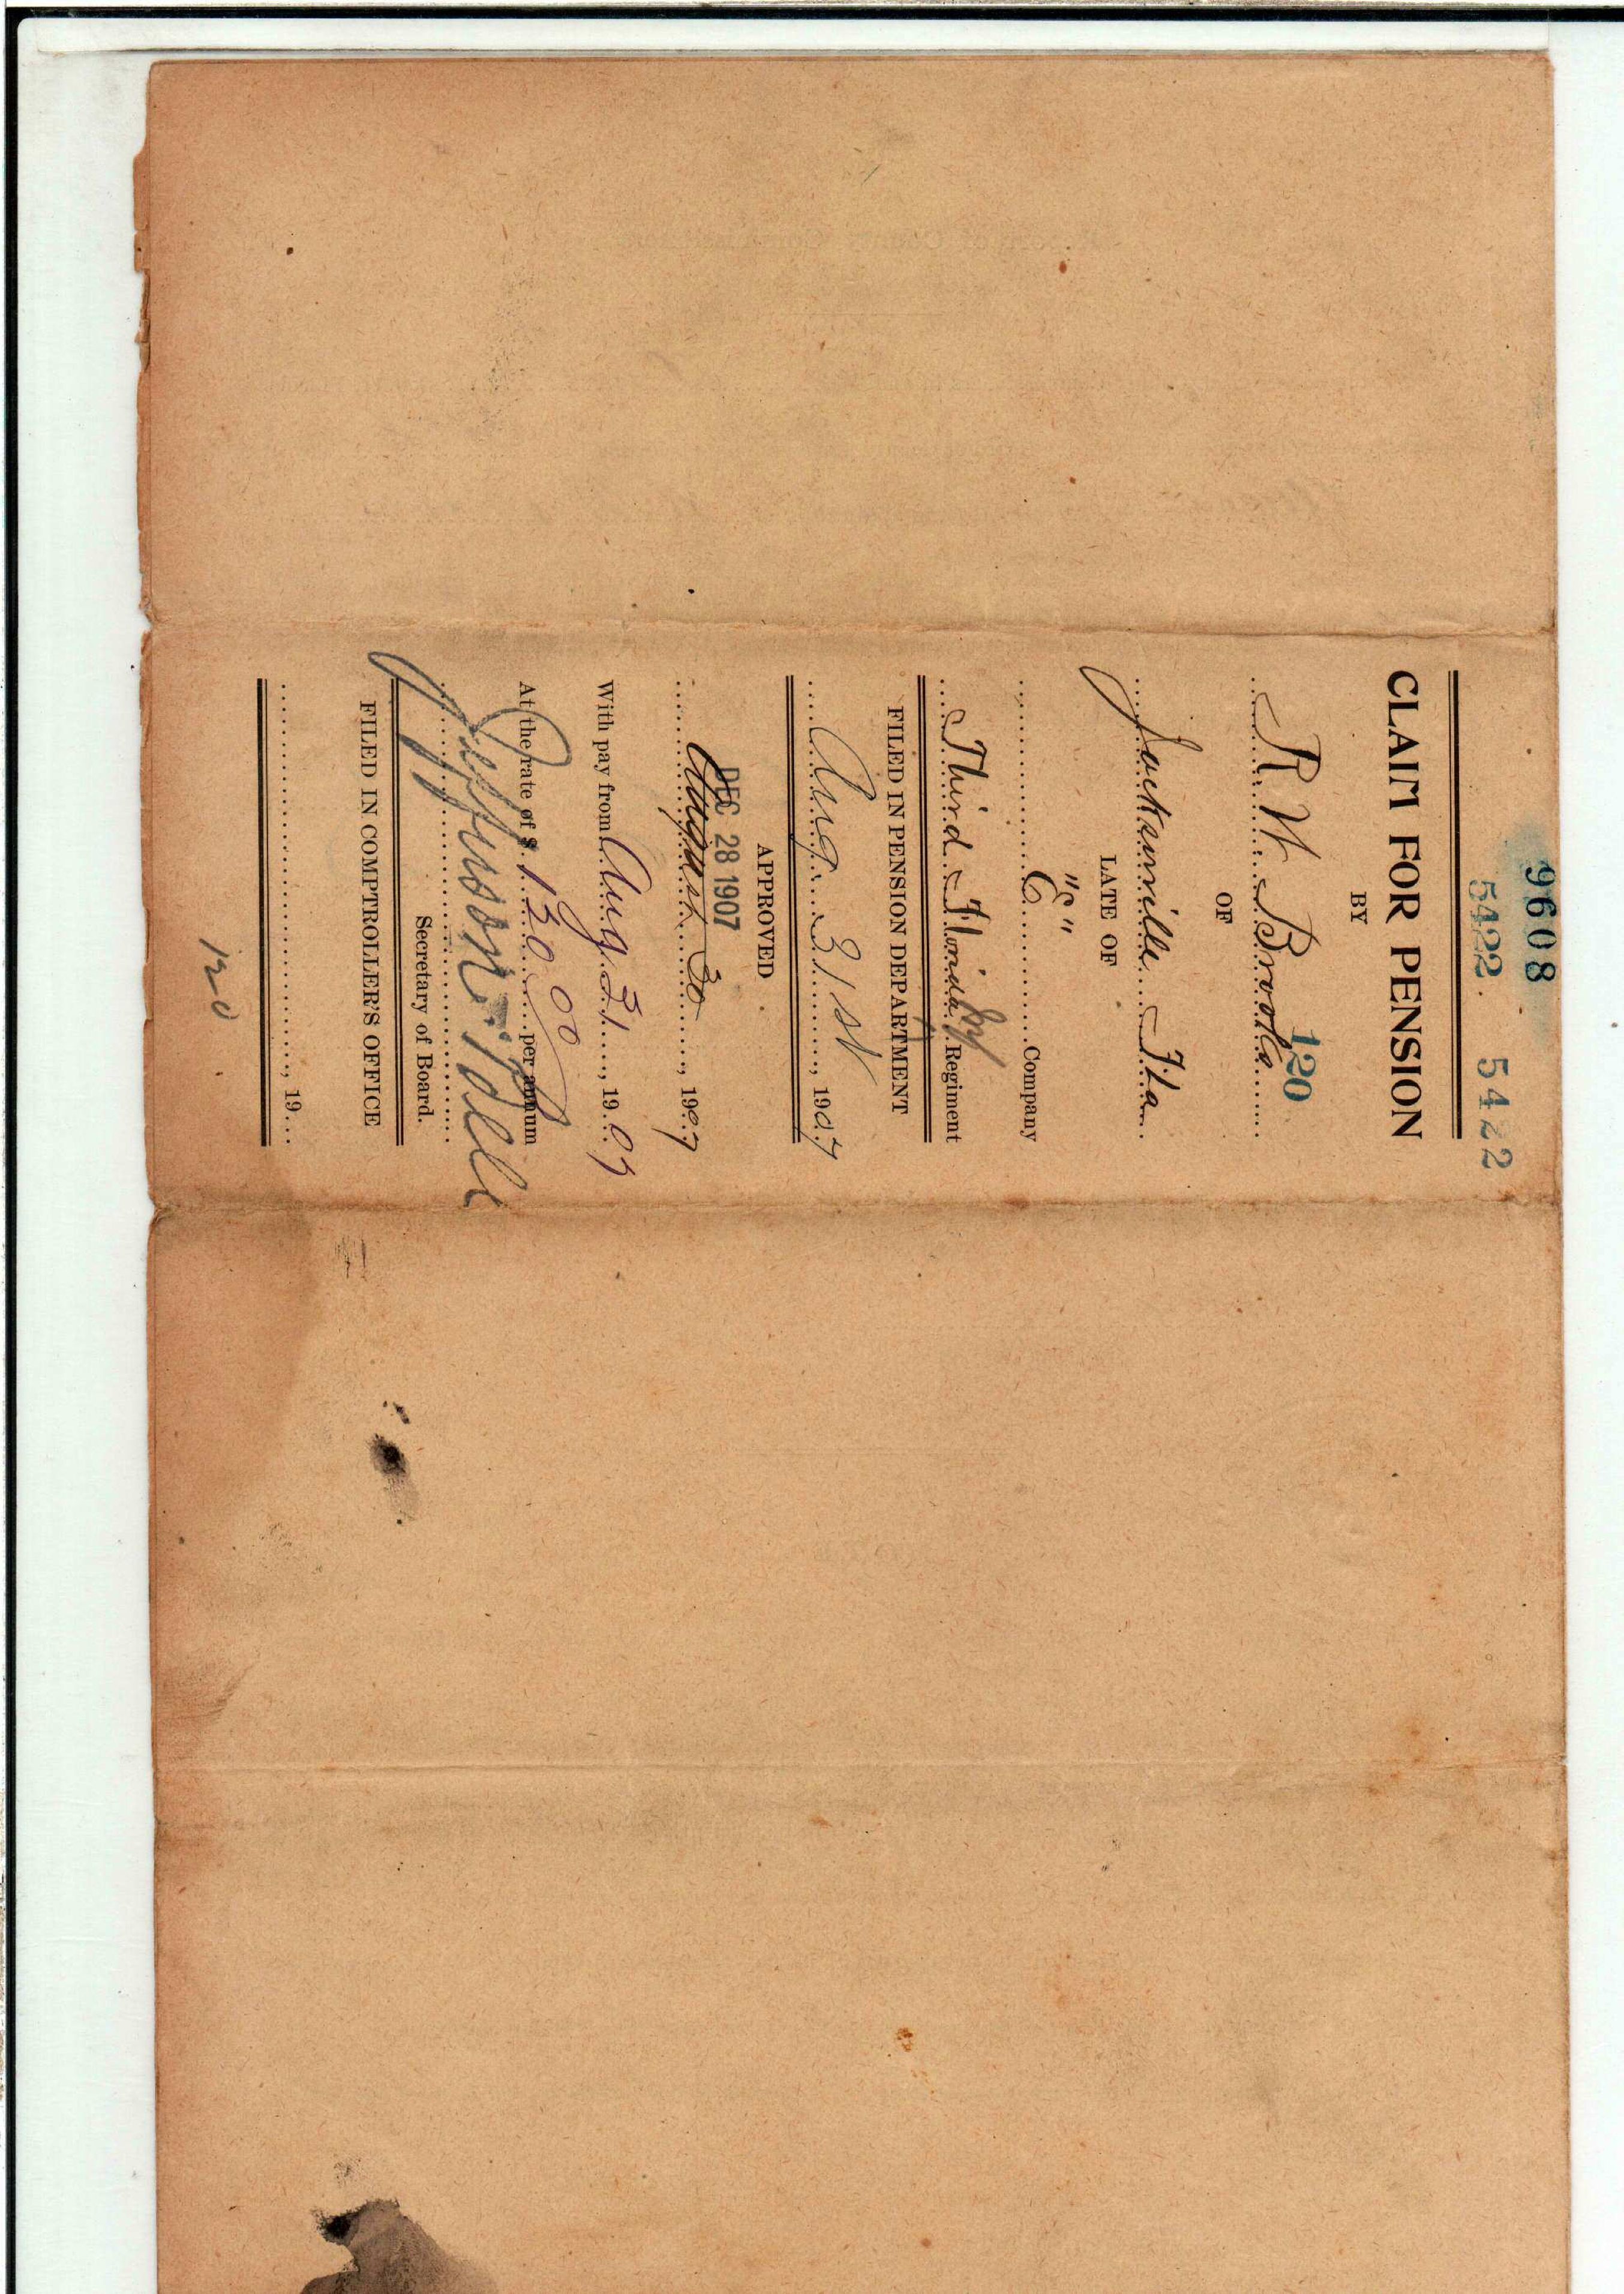 9608
5422. 5422
CLAIM FOR PENSION
BY
120
R W Brooks
OF
Jacksonville Fla
LATE OF
"C"
C Company
Third Florida Regiment
FILED IN PENSION DEPARTMENT
Aug 31st, 1907
APPROVED
DEC 28 1907
August 30, 1907
With pay from Aug 31, 1907
At the rate of $ 120 00 per annum
Jefferson B Bell
Secretary of Board.
FILED IN COMPTROLLER'S OFFICE
, 19
120